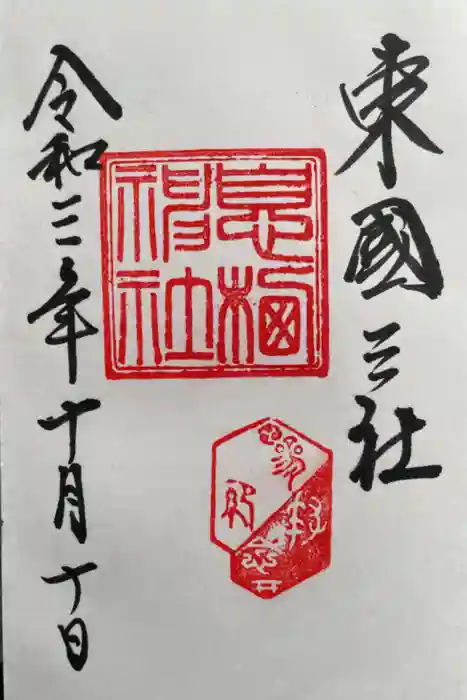 東國三社
息栖
神社
令和三年十月十日